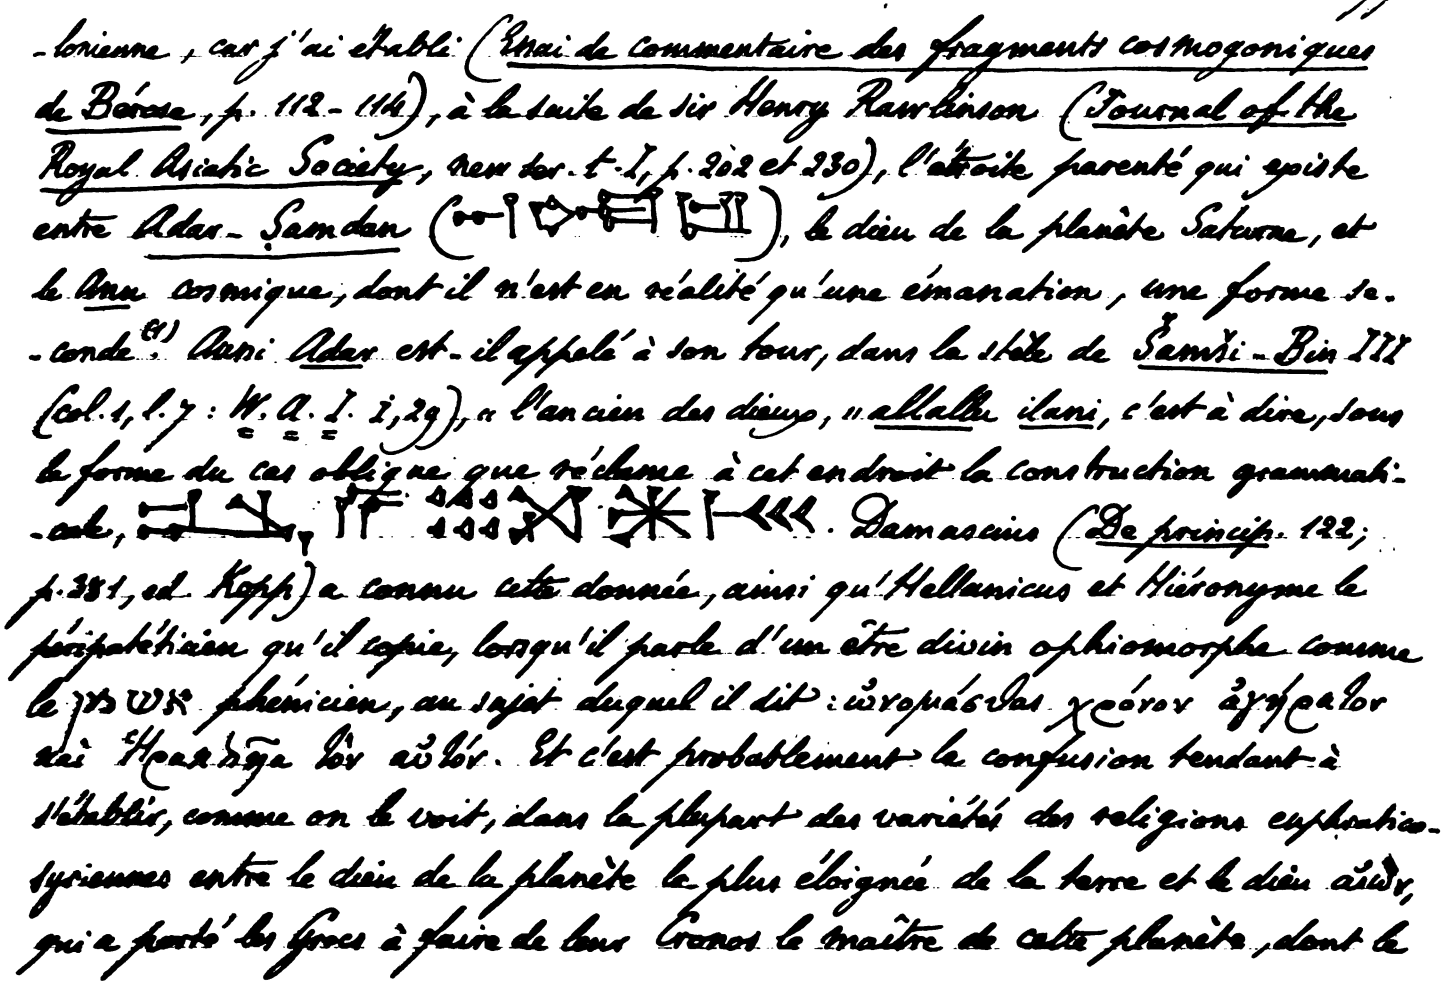 -lonienne, car j'ai établi (Essai de commentaire des fragments cosmogoniques
de Bérose, p. 112-114), à la suite de sir Henry Rawlinson (Journal of the
Royal Asiatic Society, new ser. t. I, p. 202 et 230), l'étroite parenté qui existe
entre Adar-Ṣamdan (), le dieu de la planète Saturne, et
le Anu cosmique, dont il n'est en réalité qu'une émanation, une forme se-
-conde (1). Aussi Adar est-il appelé à son tour, dans la stèle de Šamši-Bin III
(col. 1, l. 7 : W. A. I. I, 29), « l'ancien des dieux, » allallu ilani, c'est à dire, sous
la forme du cas oblique que réclame à cet endroit la construction grammati-
-cale, . Damascius (De princip. 122;
p. 381, ed. Kopp) a connu cette donnée, ainsi qu'Hellanicus et Hiéronyme le
péripatéticien qu'il copie, lorsqu'il parle d'un être divin ophiomorphe comme
le phénicien, au sujet duquel il dit : ὠνομάσθαι χρόνον ἀγήρατον
καὶ Ἡρακλῆα τὸν αὐτόν. Et c'est probablement la confusion tendant à
s'établir, comme on le voit, dans la plupart des variétés des religions euphratico-
syriennes entre le dieu de la planète la plus éloignée de la terre et le dieu αἰών,
qui a porté les Grecs à faire de leur Cronos le maître de cette planète, dont le